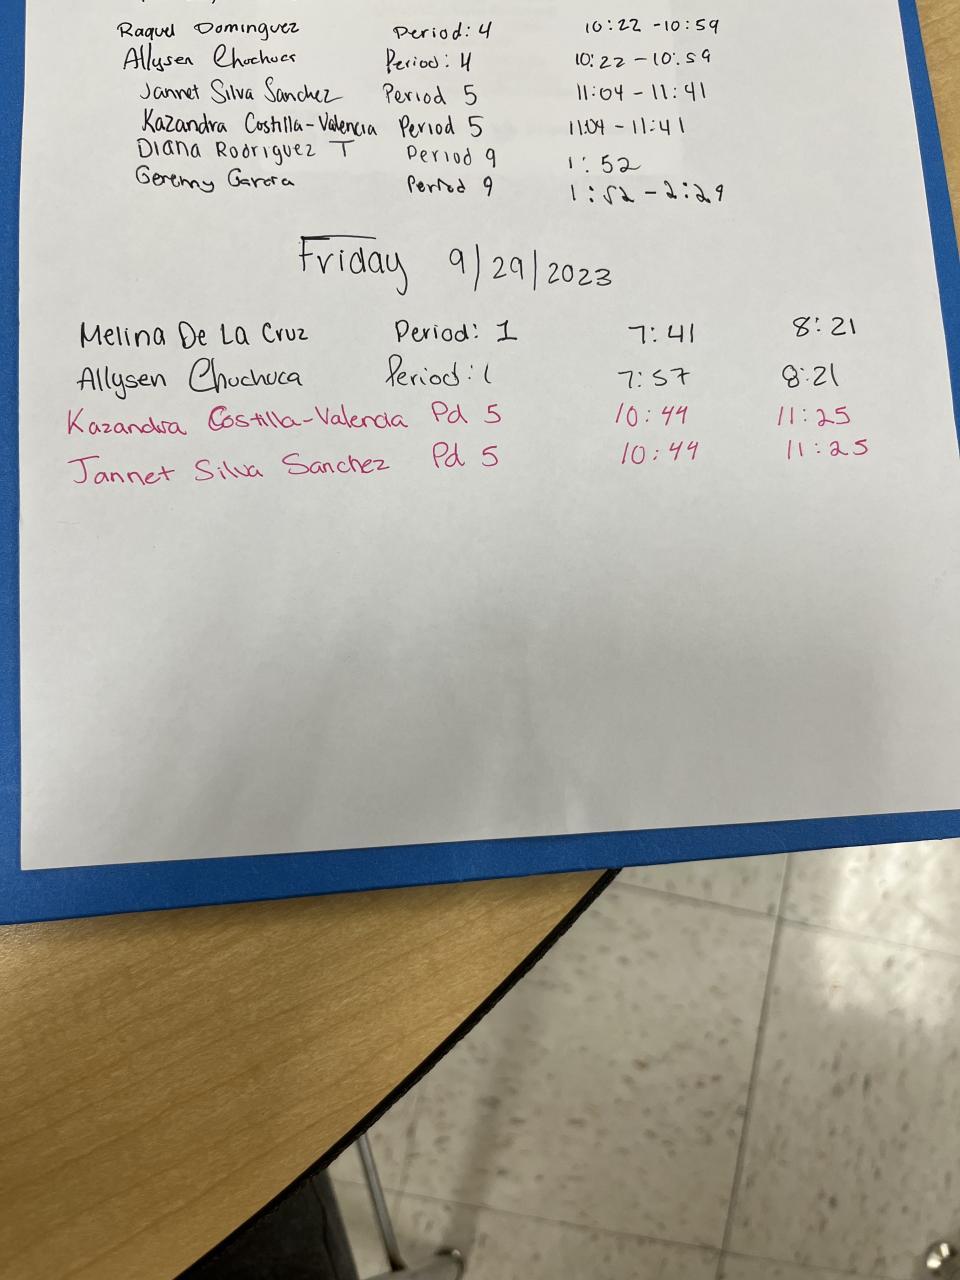 Raquel Dominguez Period: 4 10:22 - 10:59
Allysen Chuchuca Period: 4 10:22 - 10:59
Jannet Silva Sanchez Period 5 11:04 - 11:41
Kazandra Costilla-Valencia Period 5 11:04 - 11:41
Diana Rodriguez T Period 9 1:52
Geremy Garcia Period 9 1:52 - 2:29
Friday 9/29/2023
Melina De La Cruz Period: 1 7:41 8:21
Allysen Chuchuca Period: 1 7:57 8:21
Kazandra Costilla-Valencia Pd 5 10:49 11:25
Jannet Silva Sanchez Pd 5 10:49 11:25